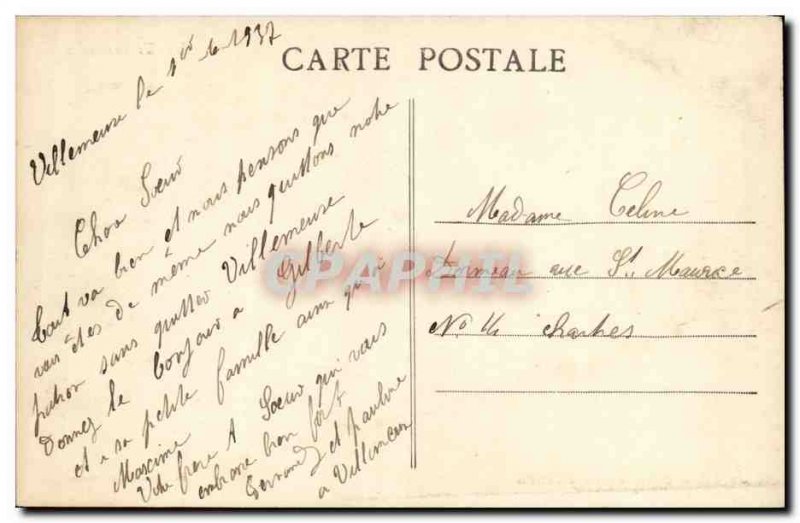 CARTE POSTALE
Villemeuse le 1er 6 1937
Cher Soeur
tout va bien et nous pensons que
vous êtes de même nous quittons notre
sans quitter Villemeuse
Donnez le bonjour a Gilberte
et a sa petite famille ainsi qu'a
Maxime
Votre frere et Soeur qui vous
embrasse bien fort
et pauline
a Villemeuse
Madame Celine
rue St Maurice
No 44 Chartres
CPAPHIL.COM